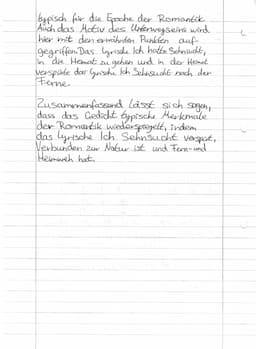 typisch für die Epoche der Romantik.
Auch das Motiv des Unterwegsseins wird
hier mit den erwähnten Punkten auf-
gegriffen. Das lyrische Ich hatte Sehnsucht,
in die Heimat zu gehen und in der Heimat
verspürte das lyrische Ich Sehnsucht nach der
Ferne.
Zusammenfassend lässt sich sagen,
dass das Gedicht typische Merkmale
der Romantik wiederspiegelt, indem
das lyrische Ich Sehnsucht verspürt,
Verbunden zur Natur ist und Fern- und
Heimweh hat.